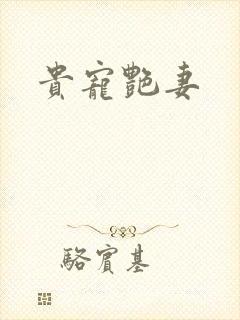 貴寵艷妻
駱賓基